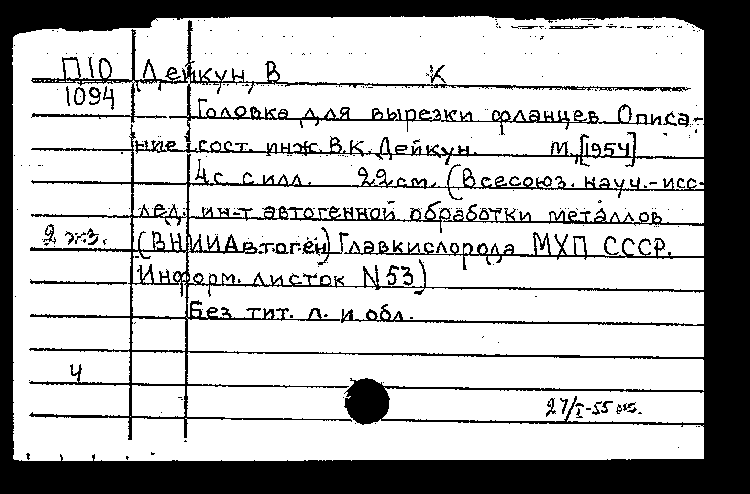 П10 Дейкун, В К
1094
Головка для вырезки фланцев. Описа-
ние сост. инж. В.К. Дейкун. М., [1954]
4 с. с илл. 22 см. (Всесоюз. науч.-исс-
лед. ин-т автогенной обработки металлов
2 экз. (ВНИИАвтоген) Главкислорода МХП СССР.
Информ. листок N 53)
Без тит. л. и обл.
4
27/I-55